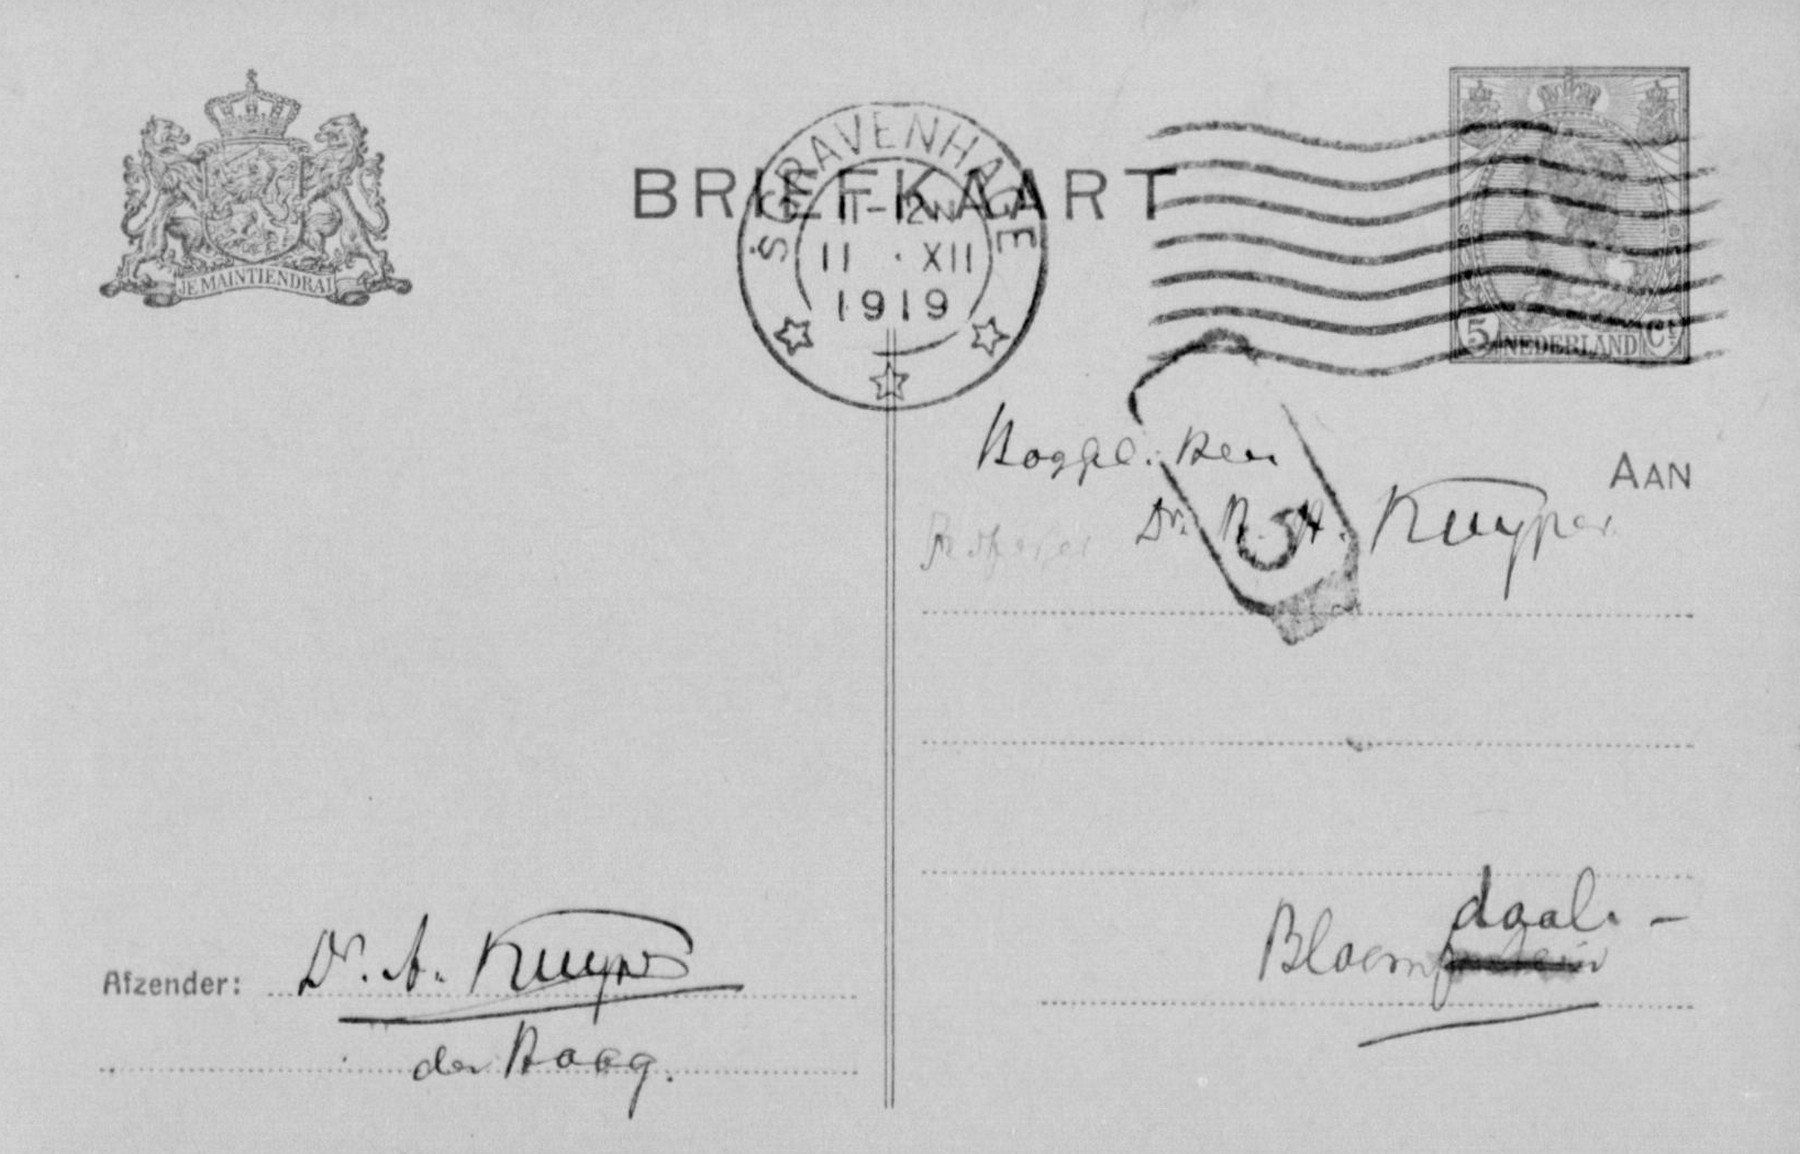 JE MAINTIENDRAI
BRIEFKAART
'S GRAVENHAGE
11-12N
11 · XII
1919
5 NEDERLAND Ct
AAN
Hoogel. Heer
Professor Dr. H. H. Kuyper
daal. -
Bloem
Afzender: Dr. A. Kuyper
den Haag.